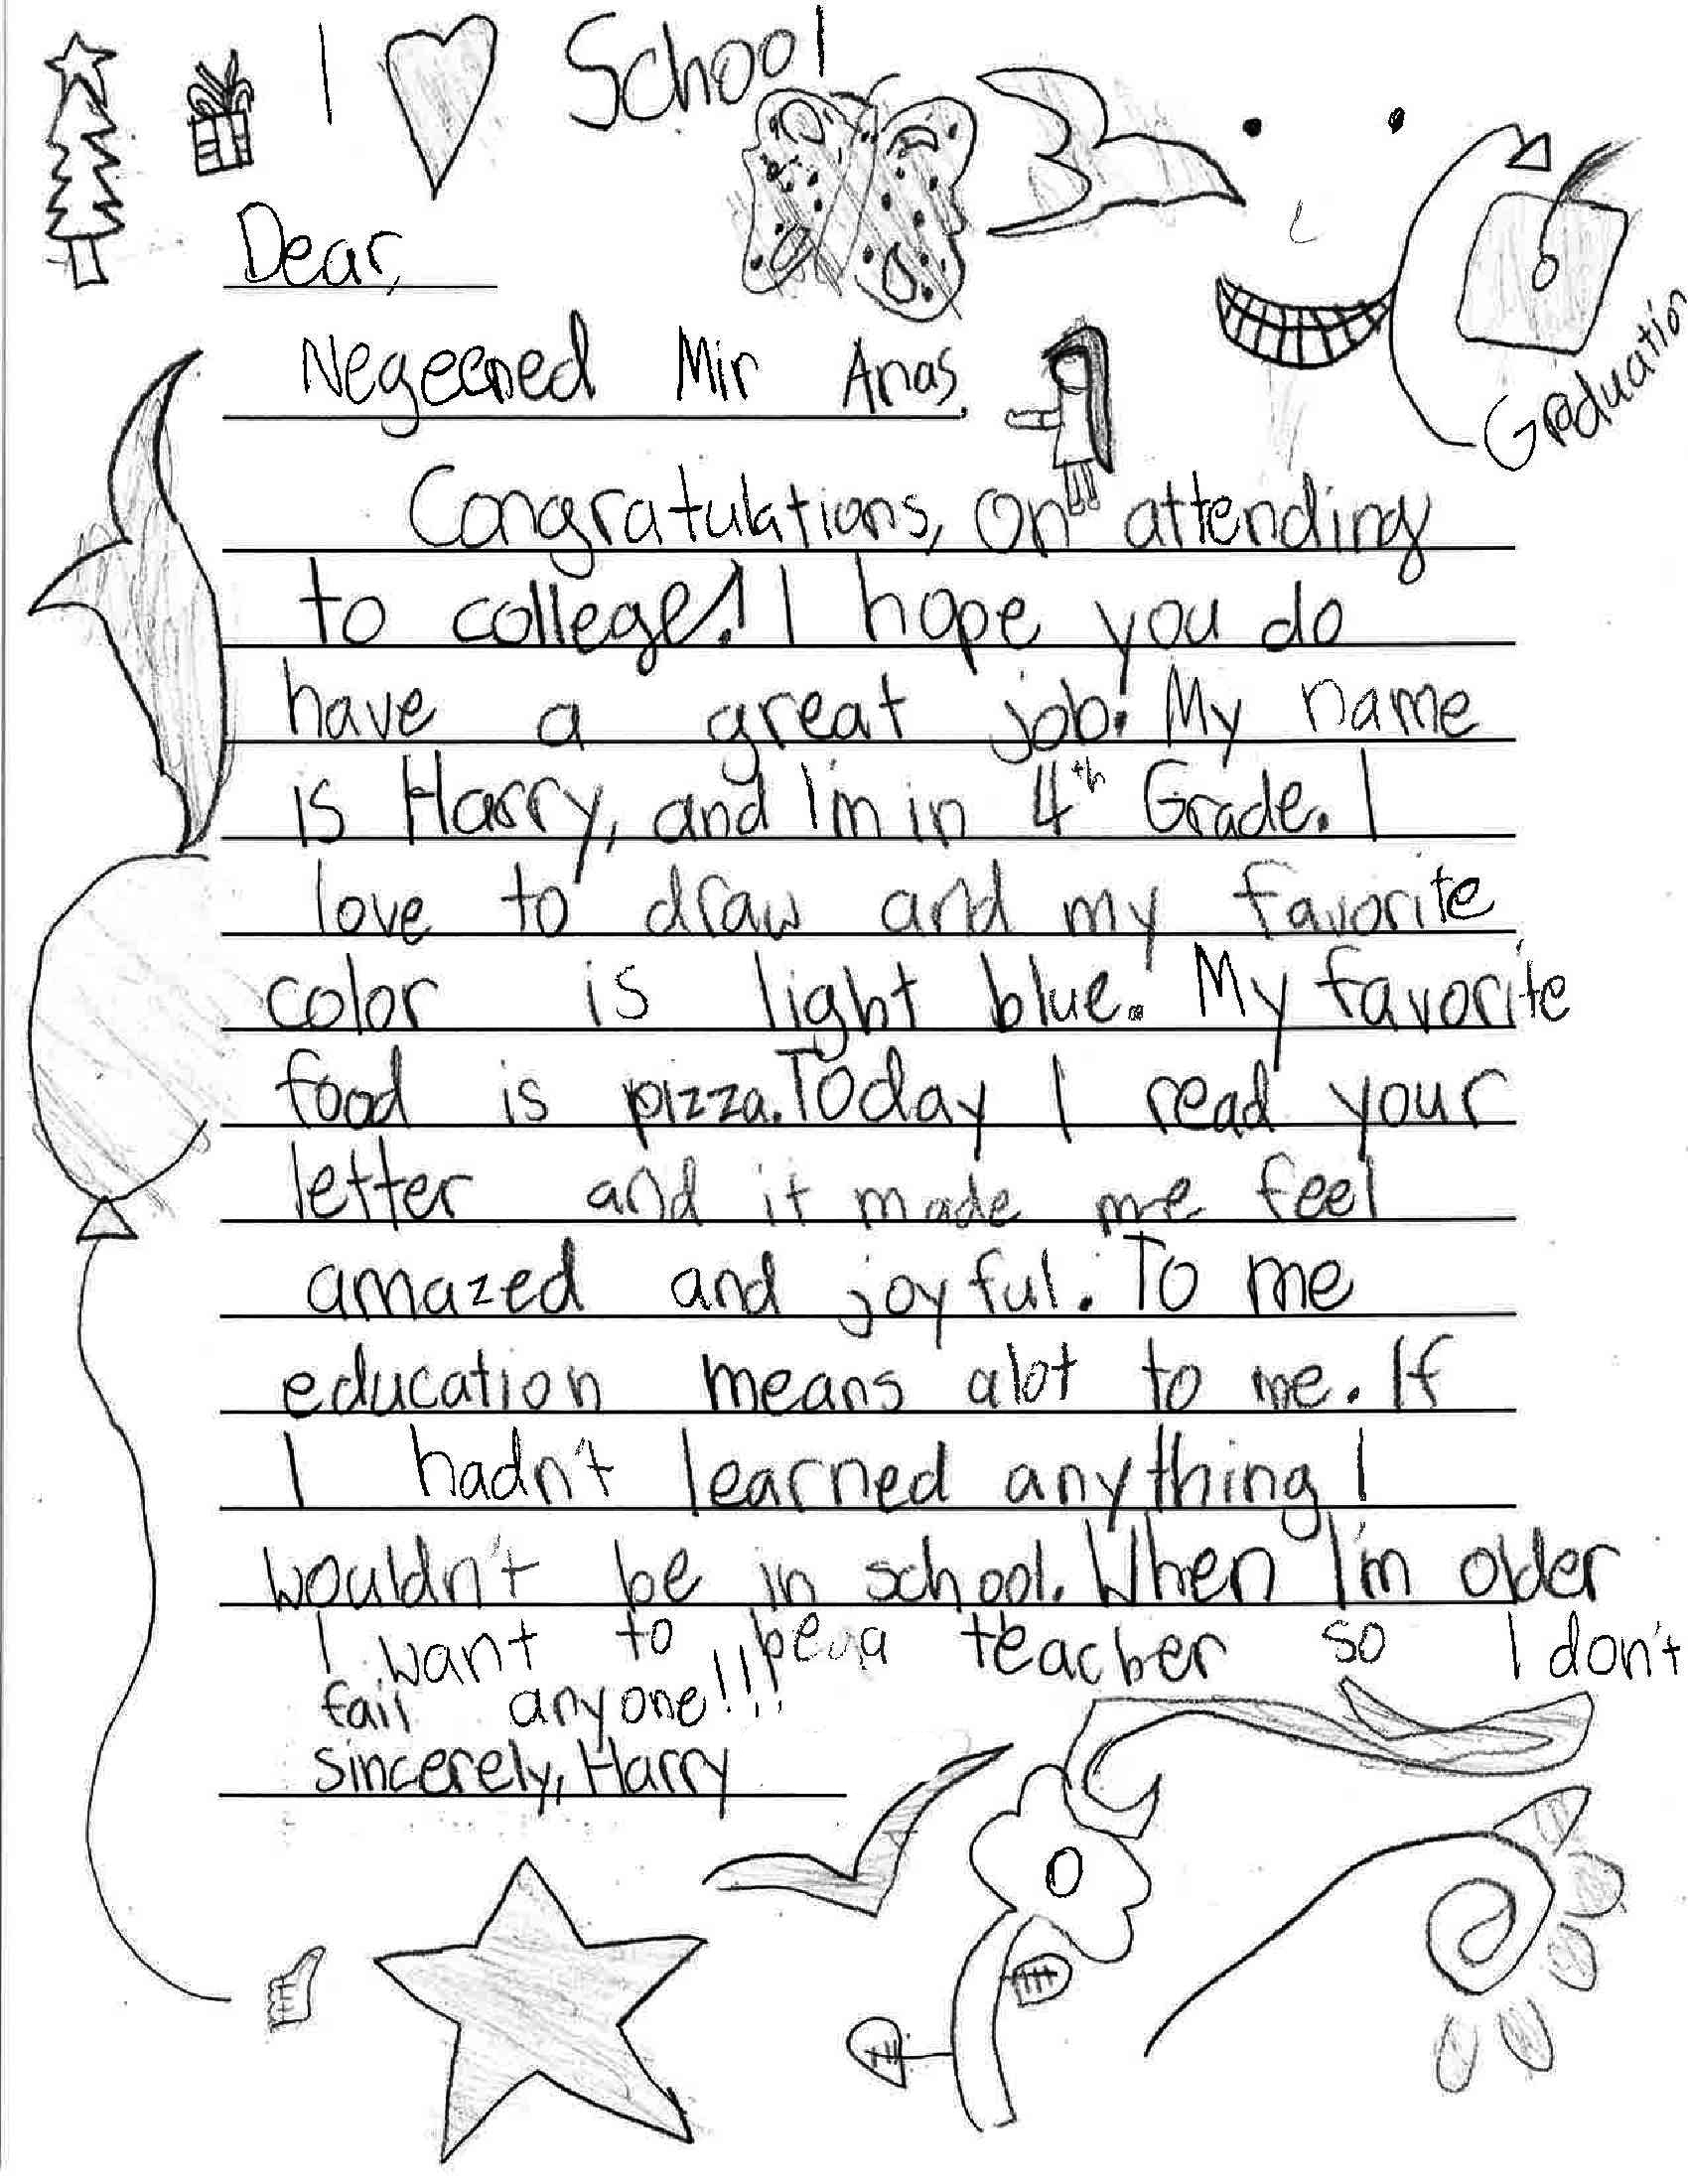 I School
Dear,
Negeened Mir Anas.
Graduation
Congratulations, on attending
to college! I hope you do
have a great job. My name
is Harry, and I'm in 4th Grade. I
love to draw and my favorite
color is light blue. My favorite
food is pizza. Today I read your
letter and it made me feel
amazed and joyful. To me
education means alot to me. If
I hadn't learned anything I
wouldn't be in school. When I'm older
I want to be a teacher so I don't
fail anyone!!!
Sincerely, Harry